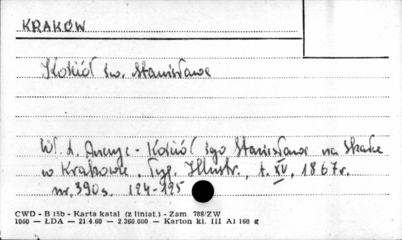 KRAKÓW
Kościół św. Stanisława
Wł. L. Anczyc - Kościół Śgo Stanisława na Skałce
w Krakowie, Tyg. Illustr., t. XV, 1867r.
nr. 390 s. 124-125
CWD - B 15b - Karta katal (z liniat.) - Zam. 788/ZW
1060 — ŁDA — 21.4.60 — 2.360.000 — Karton kl. III A1 160 g